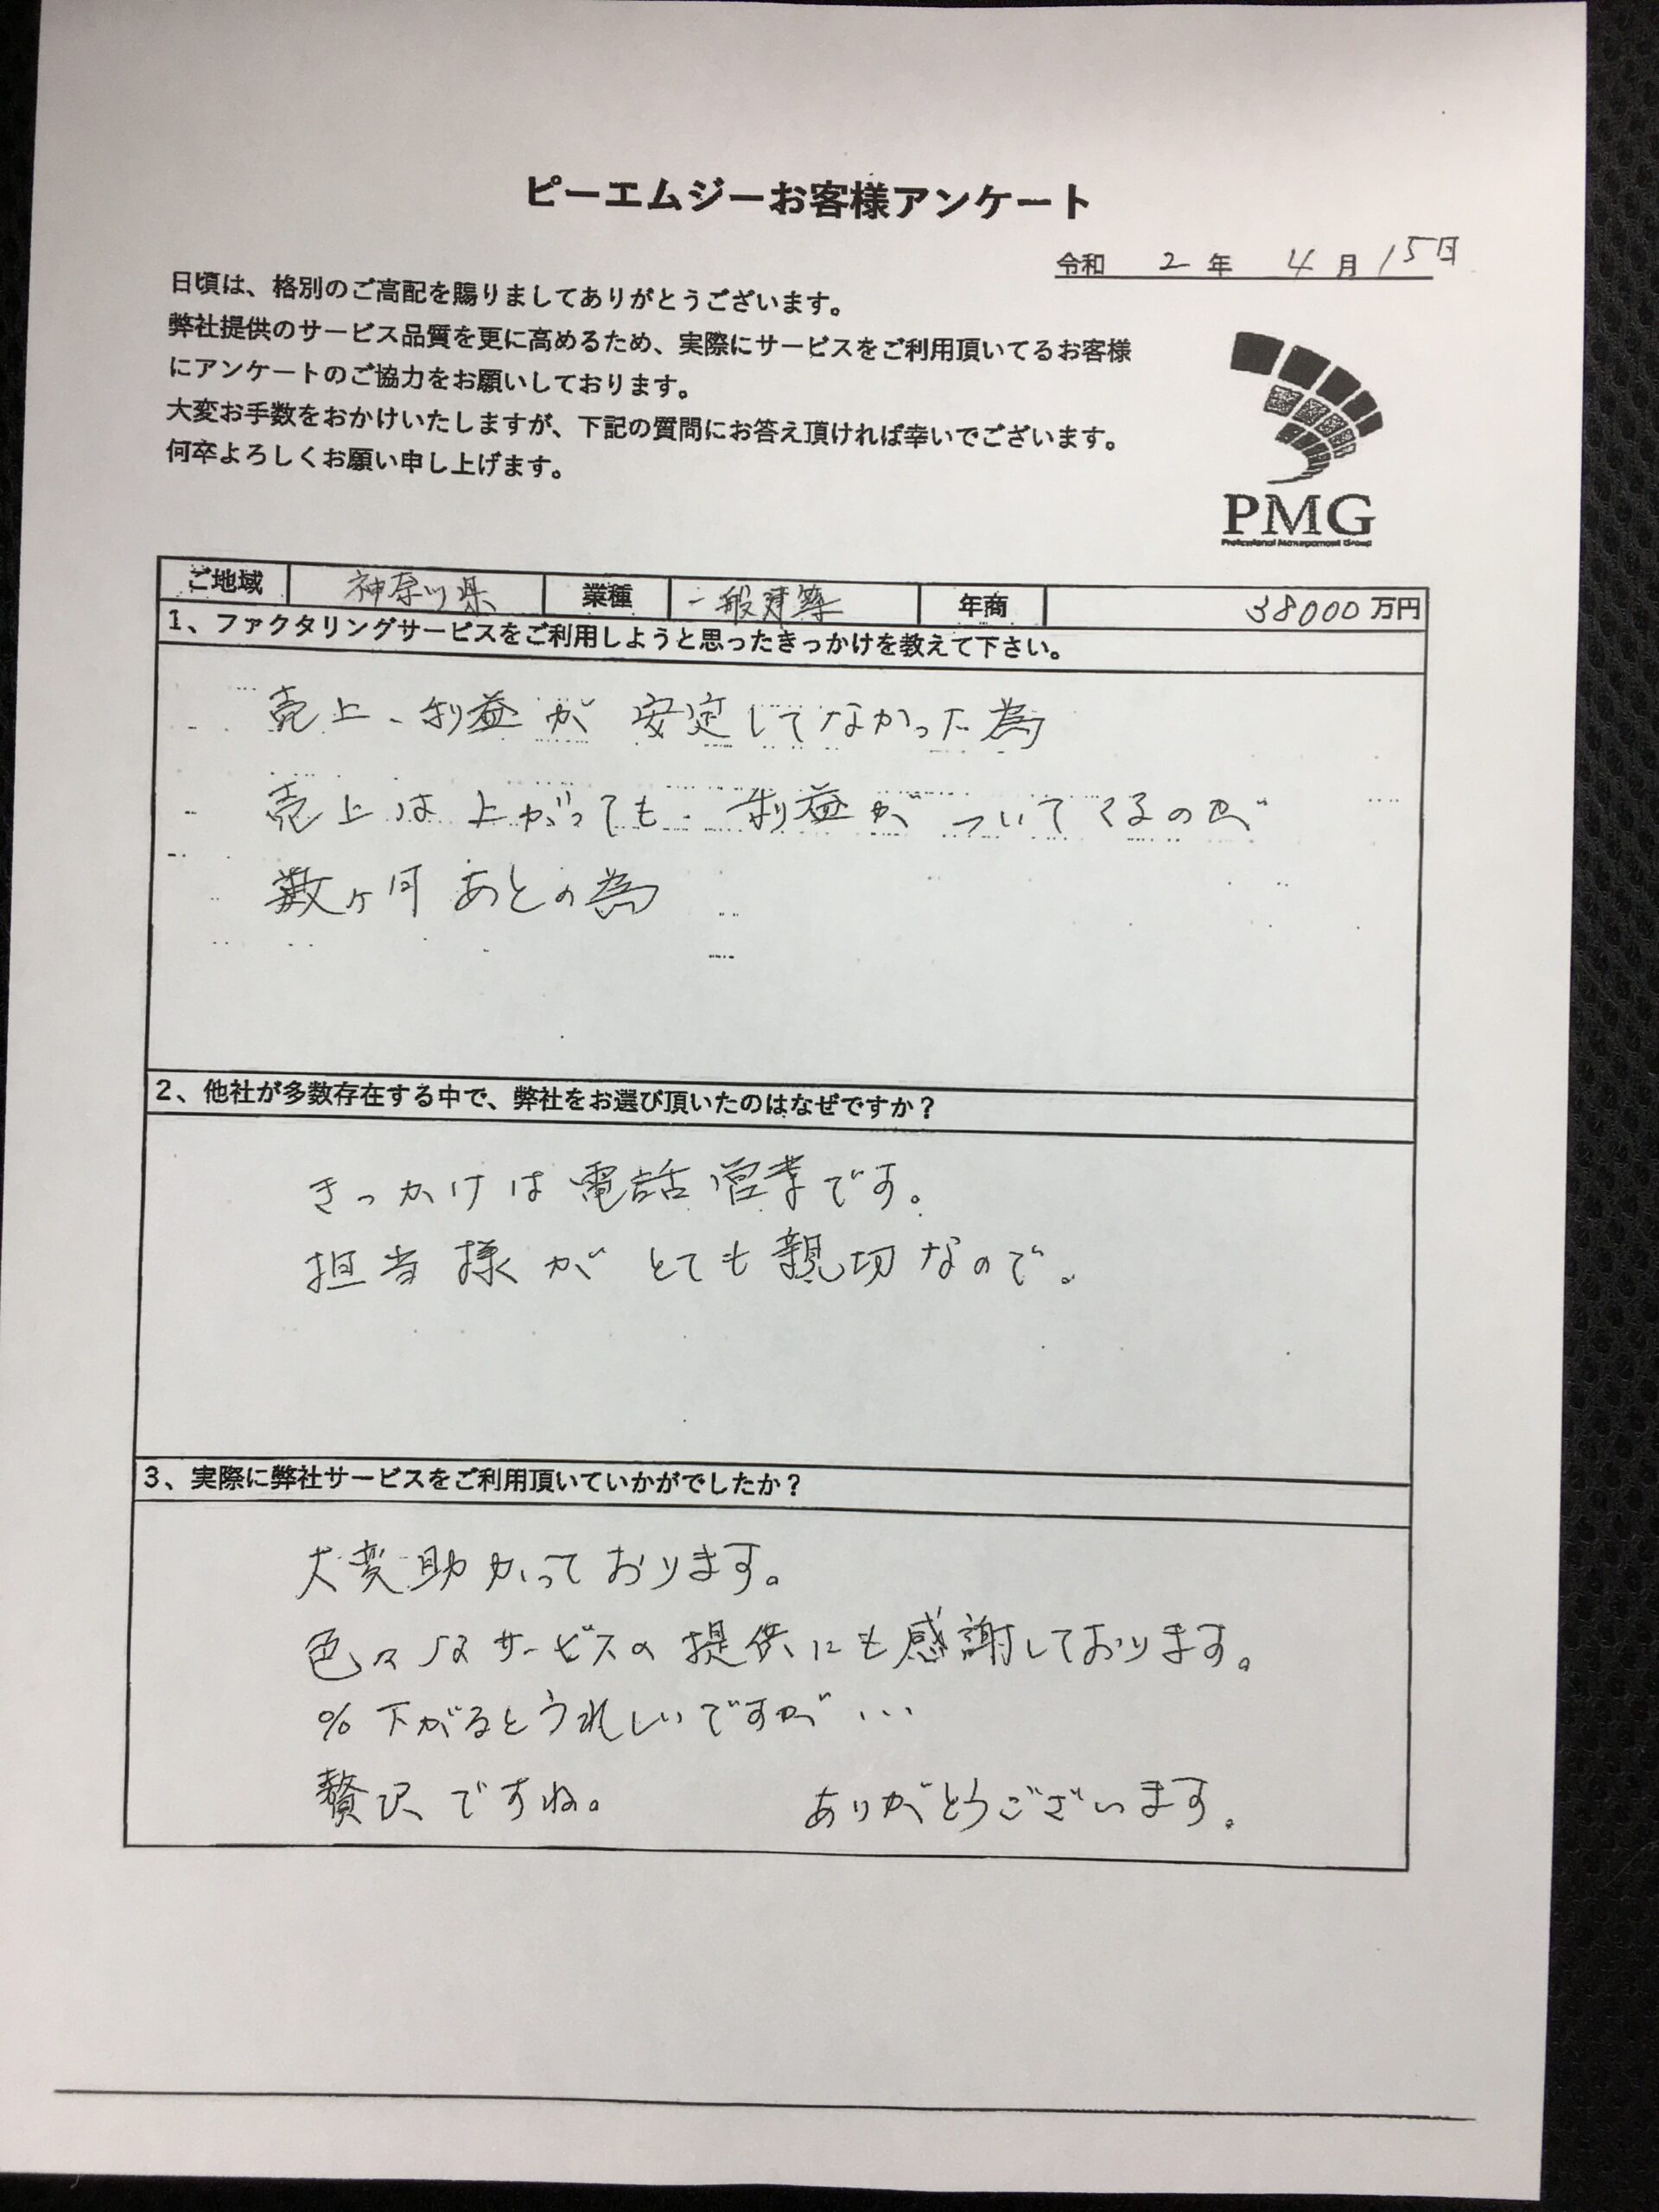 ピーエムジーお客様アンケート
令和 2 年 4 月 15日
日頃は、格別のご高配を賜りましてありがとうございます。
弊社提供のサービス品質を更に高めるため、実際にサービスをご利用頂いてるお客様
にアンケートのご協力をお願いしております。
大変お手数をおかけいたしますが、下記の質問にお答え頂ければ幸いでございます。
何卒よろしくお願い申し上げます。
PMG
Professional Management Group
ご地域 神奈川県 業種 一般建築 年商 38000 万円
1、ファクタリングサービスをご利用しようと思ったきっかけを教えて下さい。
売上、利益が安定してなかった為
売上は上がっても、利益がついてくるのが
数ヶ月あとの為
2、他社が多数存在する中で、弊社をお選び頂いたのはなぜですか？
きっかけは電話営業です。
担当様がとても親切なので。
3、実際に弊社サービスをご利用頂いていかがでしたか？
大変助かっております。
色々なサービスの提供にも感謝しております。
％下がるとうれしいですが…
贅沢ですね。 ありがとうございます。